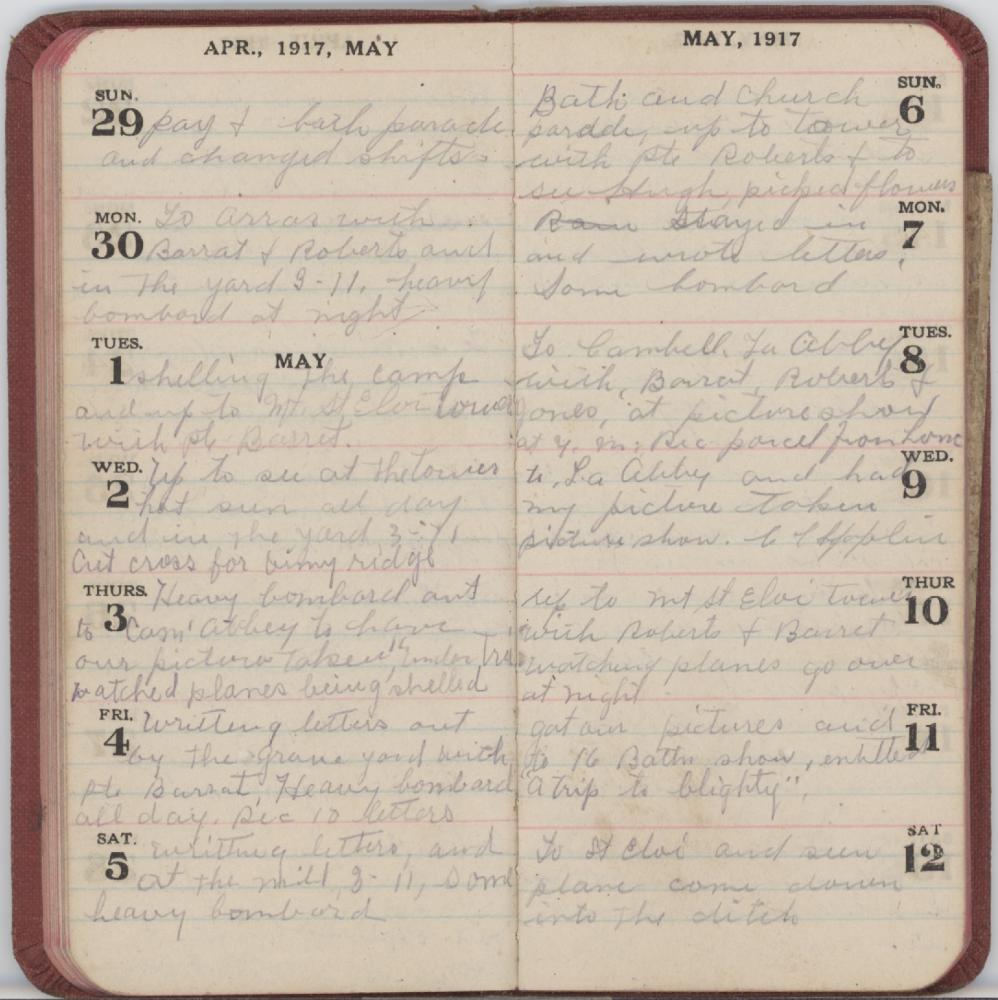 APR., 1917, MAY
SUN.
29 pay & bath parade
and changed shifts.
MON.
30 To Arras with
Barrat & Roberts and
in the yard 3-11. heavy
bombard at night
TUES.
MAY
1 shelling the camp
and up to Mt. St Eloi tower
with Pte Barret.
WED.
2 Up to see at the tower
hot sun all day
and in the yard 3-11
Cut cross for bimy ridge
THURS.
3 Heavy bombard out
to Abbey to have
our picture taken
watched planes being shelled
FRI.
4 Writting letters out
by the grave yard with
Pte Barrat, Heavy bombard
all day. Rec 10 letters
SAT.
5 writting letters, and
at the mill, 3-11, some
heavy bombard
MAY, 1917
SUN.
6 Bath and Church
parade, up to tower
with Pte Roberts & to
see Hugh, picked flowers
MON.
7 Stayed in
and wrote letters,
some bombard
TUES.
8 To Cambell. La Abbey
with, Barrat, Roberts &
Jones, at picture show
at Y. M. Rec parcel from home
WED.
9 to, La Abby and had
my picture taken
picture show. C Chaplin
THUR
10 up to Mt St Eloi Tower
with Roberts & Barret
watching planes go over
at night
FRI.
11 got our pictures and
to 16 Batn show, entitled
"A trip to blighty".
SAT
12 To St Eloi and seen
plane come down
into the ditch